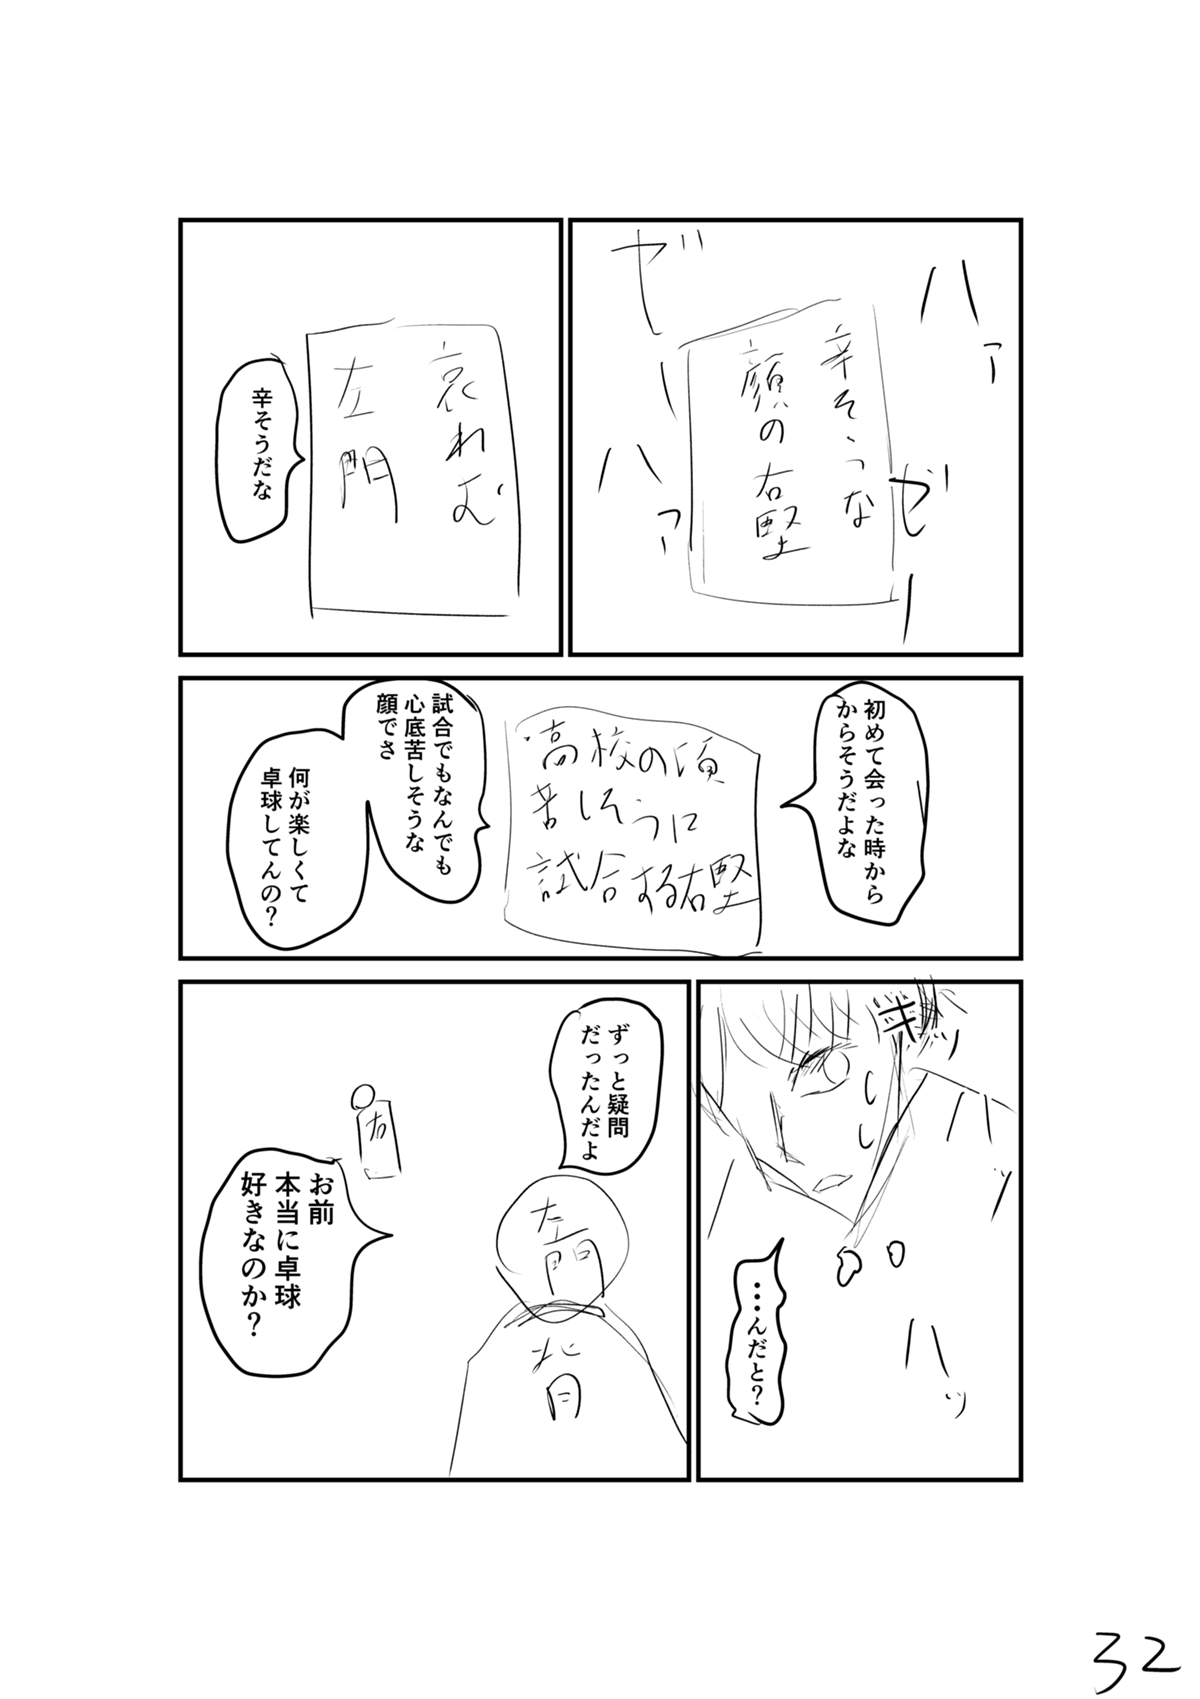 ハァ
ゼー
ハァ
ゼー
辛そうな
顔の右堅
哀れむ
左門
辛そうだな
初めて会った時から
からそうだよな
高校の頃
苦しそうに
試合する右堅
試合でもなんでも
心底苦しそうな
顔でさ
何が楽しくて
卓球してんの?
ハッ
ハッ
・・・んだと?
ずっと疑問
だったんだよ
左門
背
右
お前
本当に卓球
好きなのか?
32